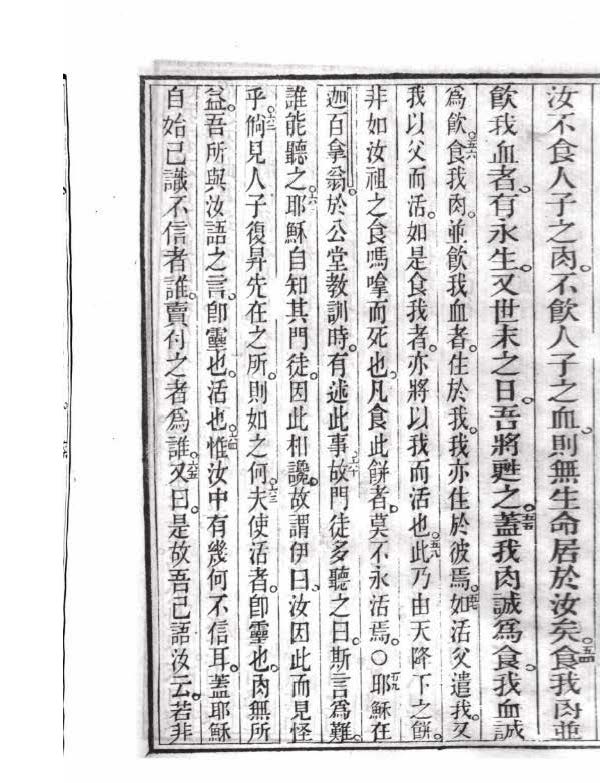 汝不食人子之肉。不飲人子之血。則無生命居於汝矣。五四食我肉並
飲我血者。有永生。又世末之日。吾將甦之。五五蓋我肉誠爲食。我血誠
爲飲。五六食我肉。並飲我血者。住於我。我亦住於彼焉。五七如活父遣我。又
我以父而活。如是食我者。亦將以我而活也。此乃由天降下之餅。
非如汝祖之食嗎嗱而死也。凡食此餅者。莫不永活焉。○五九耶穌在
迦百拿翁於公堂教訓時。有述此事。六十故門徒多聽之曰。斯言爲難。
誰能聽之。六一耶穌自知其門徒。因此相讒。故謂伊曰。汝因此而見怪
乎。六二倘見人子復昇先在之所。則如之何。六三夫使活者。卽靈也。肉無所
益。吾所與汝語之言。卽靈也。活也。六四惟汝中有幾何不信耳。蓋耶穌
自始已識不信者誰。賣付之者爲誰。六五又曰。是故吾已語汝云。若非